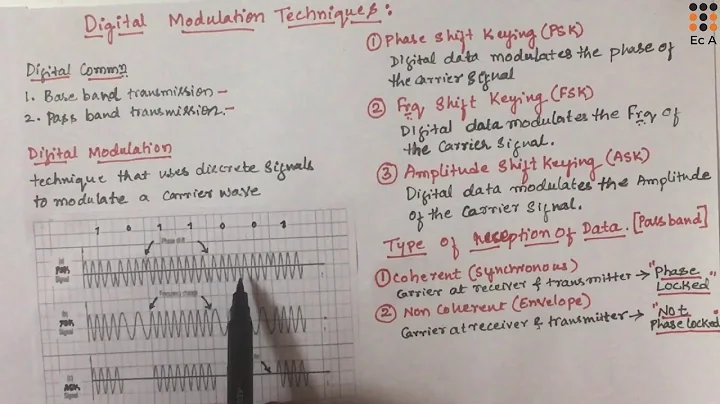 Digital Modulation Techniques:
Ec A
Digital Commn
1. Base band transmission -
2. Pass band transmission. -
Digital Modulation
technique that uses discrete signals
to modulate a carrier wave
1 0 1 1 0 0 1
Phase shift
(a)
PSK
Signal
Frequency change
(b)
FSK
Signal
(c)
ASK
Signal
① Phase Shift Keying (PSK)
Digital data modulates the phase of
the carrier signal
② Frq Shift Keying (FSK)
Digital data modulates the Frq of
the Carrier Signal.
③ Amplitude Shift Keying (ASK)
Digital data modulates the Amplitude
of the Carrier Signal.
Type of Reception of Data. [Passband]
① Coherent (Synchronous)
Carrier at receiver & transmitter → "Phase
Locked"
② Non Coherent (Envelope)
Carrier at receiver & transmitter → "Not
Phase Locked"